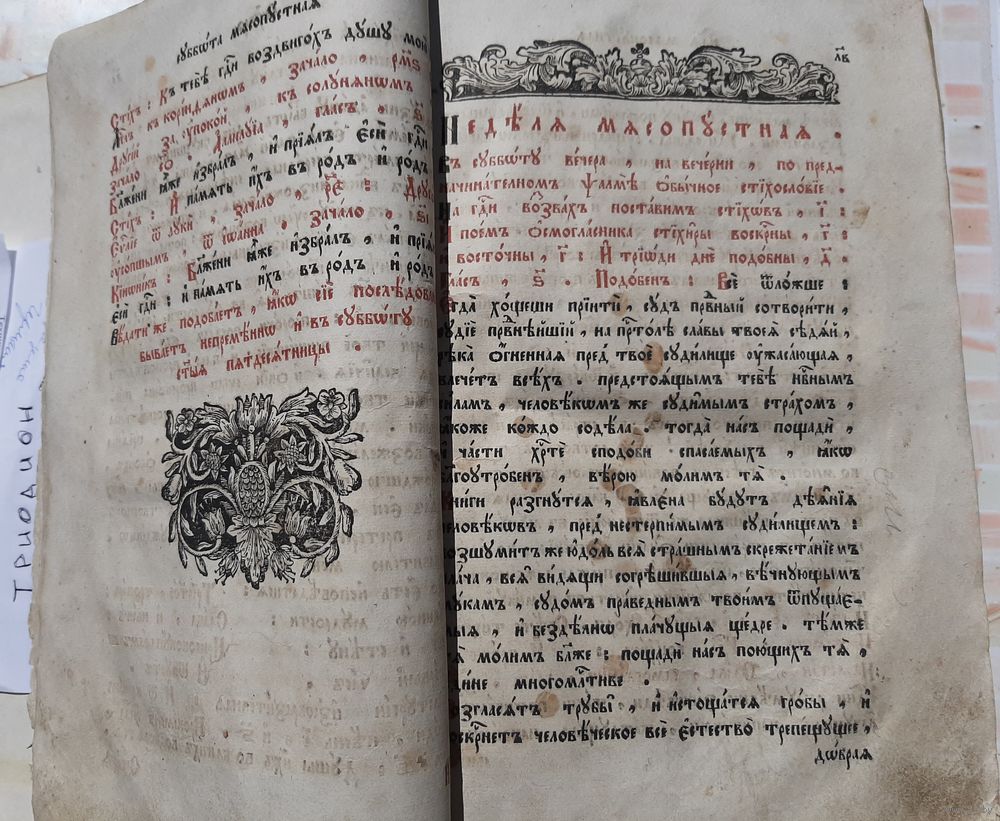 суббѡта мѧсопустнаѧ
Стіхъ : Къ тебѣ гдⷭ҇и воздвигохъ душу мою
Апⷭ҇лъ къ корінѳѧномъ , зачало , рм҃ѕ
Другій за упокой , къ солунѧномъ
зачало ѻ҃ . Аллилуіа , гласъ , и҃
Бл҃жени ꙗже избралъ , и пріѧлъ есѝ гдⷭ҇и
Стіхъ : И память ихъ въ родъ и родъ
Еѵⷢ҇ліе ѿ луки , зачало ,
усопшымъ , ѿ іѡанна , зачало , ѕ҃і
Кіноникъ : Бл҃жени ꙗже избралъ , и пріѧ
есѝ гдⷭ҇и : и память ихъ въ родъ и родъ
Вѣдати же подобаетъ , ꙗкѡ сіе послѣдова
бываетъ непремѣннѡ и въ суббѡту
ст҃ыѧ пѧтдесѧтницы .
л҃в
Недѣлѧ мѧсопустнаѧ .
въ суббѡту вечера , на вечерни , по пред-
начинателномъ ѱалмѣ ѡбычное стіхословіе .
на гдⷭ҇и воззвахъ поставимъ стіхѡвъ , і҃ :
И поемъ ѻсмогласника стіхиры воскрⷭ҇ны , г҃ :
и восточны , г҃ : И тріѡди днѐ подобны , д҃ .
Гласъ , ѕ҃ . Подобенъ : Всѐ ѿложше :
Егда хощеши пріити , судъ првⷣный сотворити ,
судіе првⷣнѣйшій , на прⷭ҇толѣ славы твоеѧ сѣдѧй ,
рѣка ѻгненнаѧ пред твое судилище ужасающаѧ ,
влечетъ всѣхъ . предстоѧщымъ тебѣ нбⷭ҇нымъ
силамъ , человѣкѡмъ же судимымъ страхомъ ,
ꙗкоже кождо содѣла . тогда насъ пощади ,
и части хрⷭ҇те сподоби спасаемыхъ , ꙗкѡ
бл҃гоутробенъ , вѣрою молимъ тѧ .
Книги разгнутсѧ , ꙗвлена будутъ дѣѧніѧ
человѣкѡвъ , пред нестерпимымъ судилищемъ :
возшумитъ же юдоль всѧ страшнымъ скрежетаніемъ
плача , всѧ видѧщи согрѣшившыѧ , вѣчнующымъ
мукамъ , судомъ праведнымъ твоимъ ѿпущае-
мыѧ , и бездѣлнѡ плачущыѧ щедре . тѣмже
тѧ молимъ бл҃же : пощади насъ поющихъ тѧ ,
едине многомлⷭ҇тиве .
возгласѧтъ трубы , и истощатсѧ гробы , и
воскрⷭ҇нетъ человѣческое всѐ естество трепещущее ,
дѡбраѧ
ТРИОДИОН